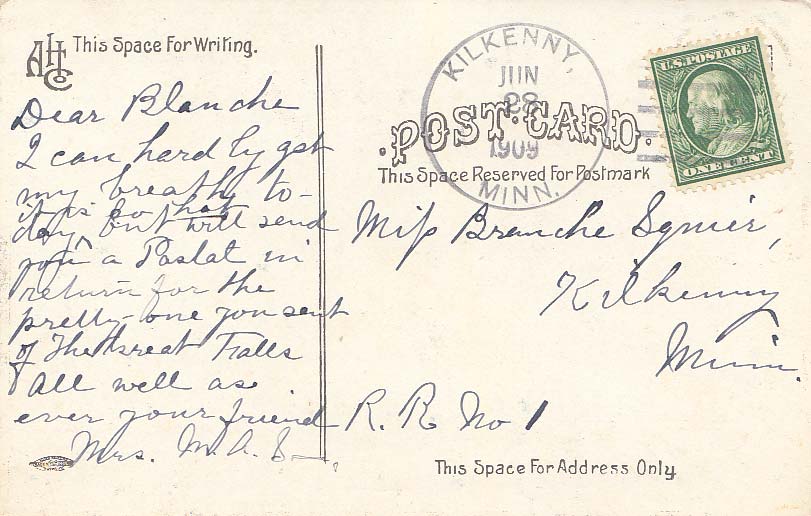 AHT Co
This Space For Writing.
Dear Blanche
I can hardly get
my breath, to-
it is so hot
day but will send
you a Postal in
return for the
pretty one you sent
of The Great Falls
All well as
ever your friend
Mrs. M. A. S
KILKENNY,
JUN
28
1909
MINN.
POST CARD.
This Space Reserved For Postmark
U.S. POSTAGE
ONE CENT
Miss Blanche Squier,
Kilkenny
Minn.
R. R. No 1
This Space For Address Only